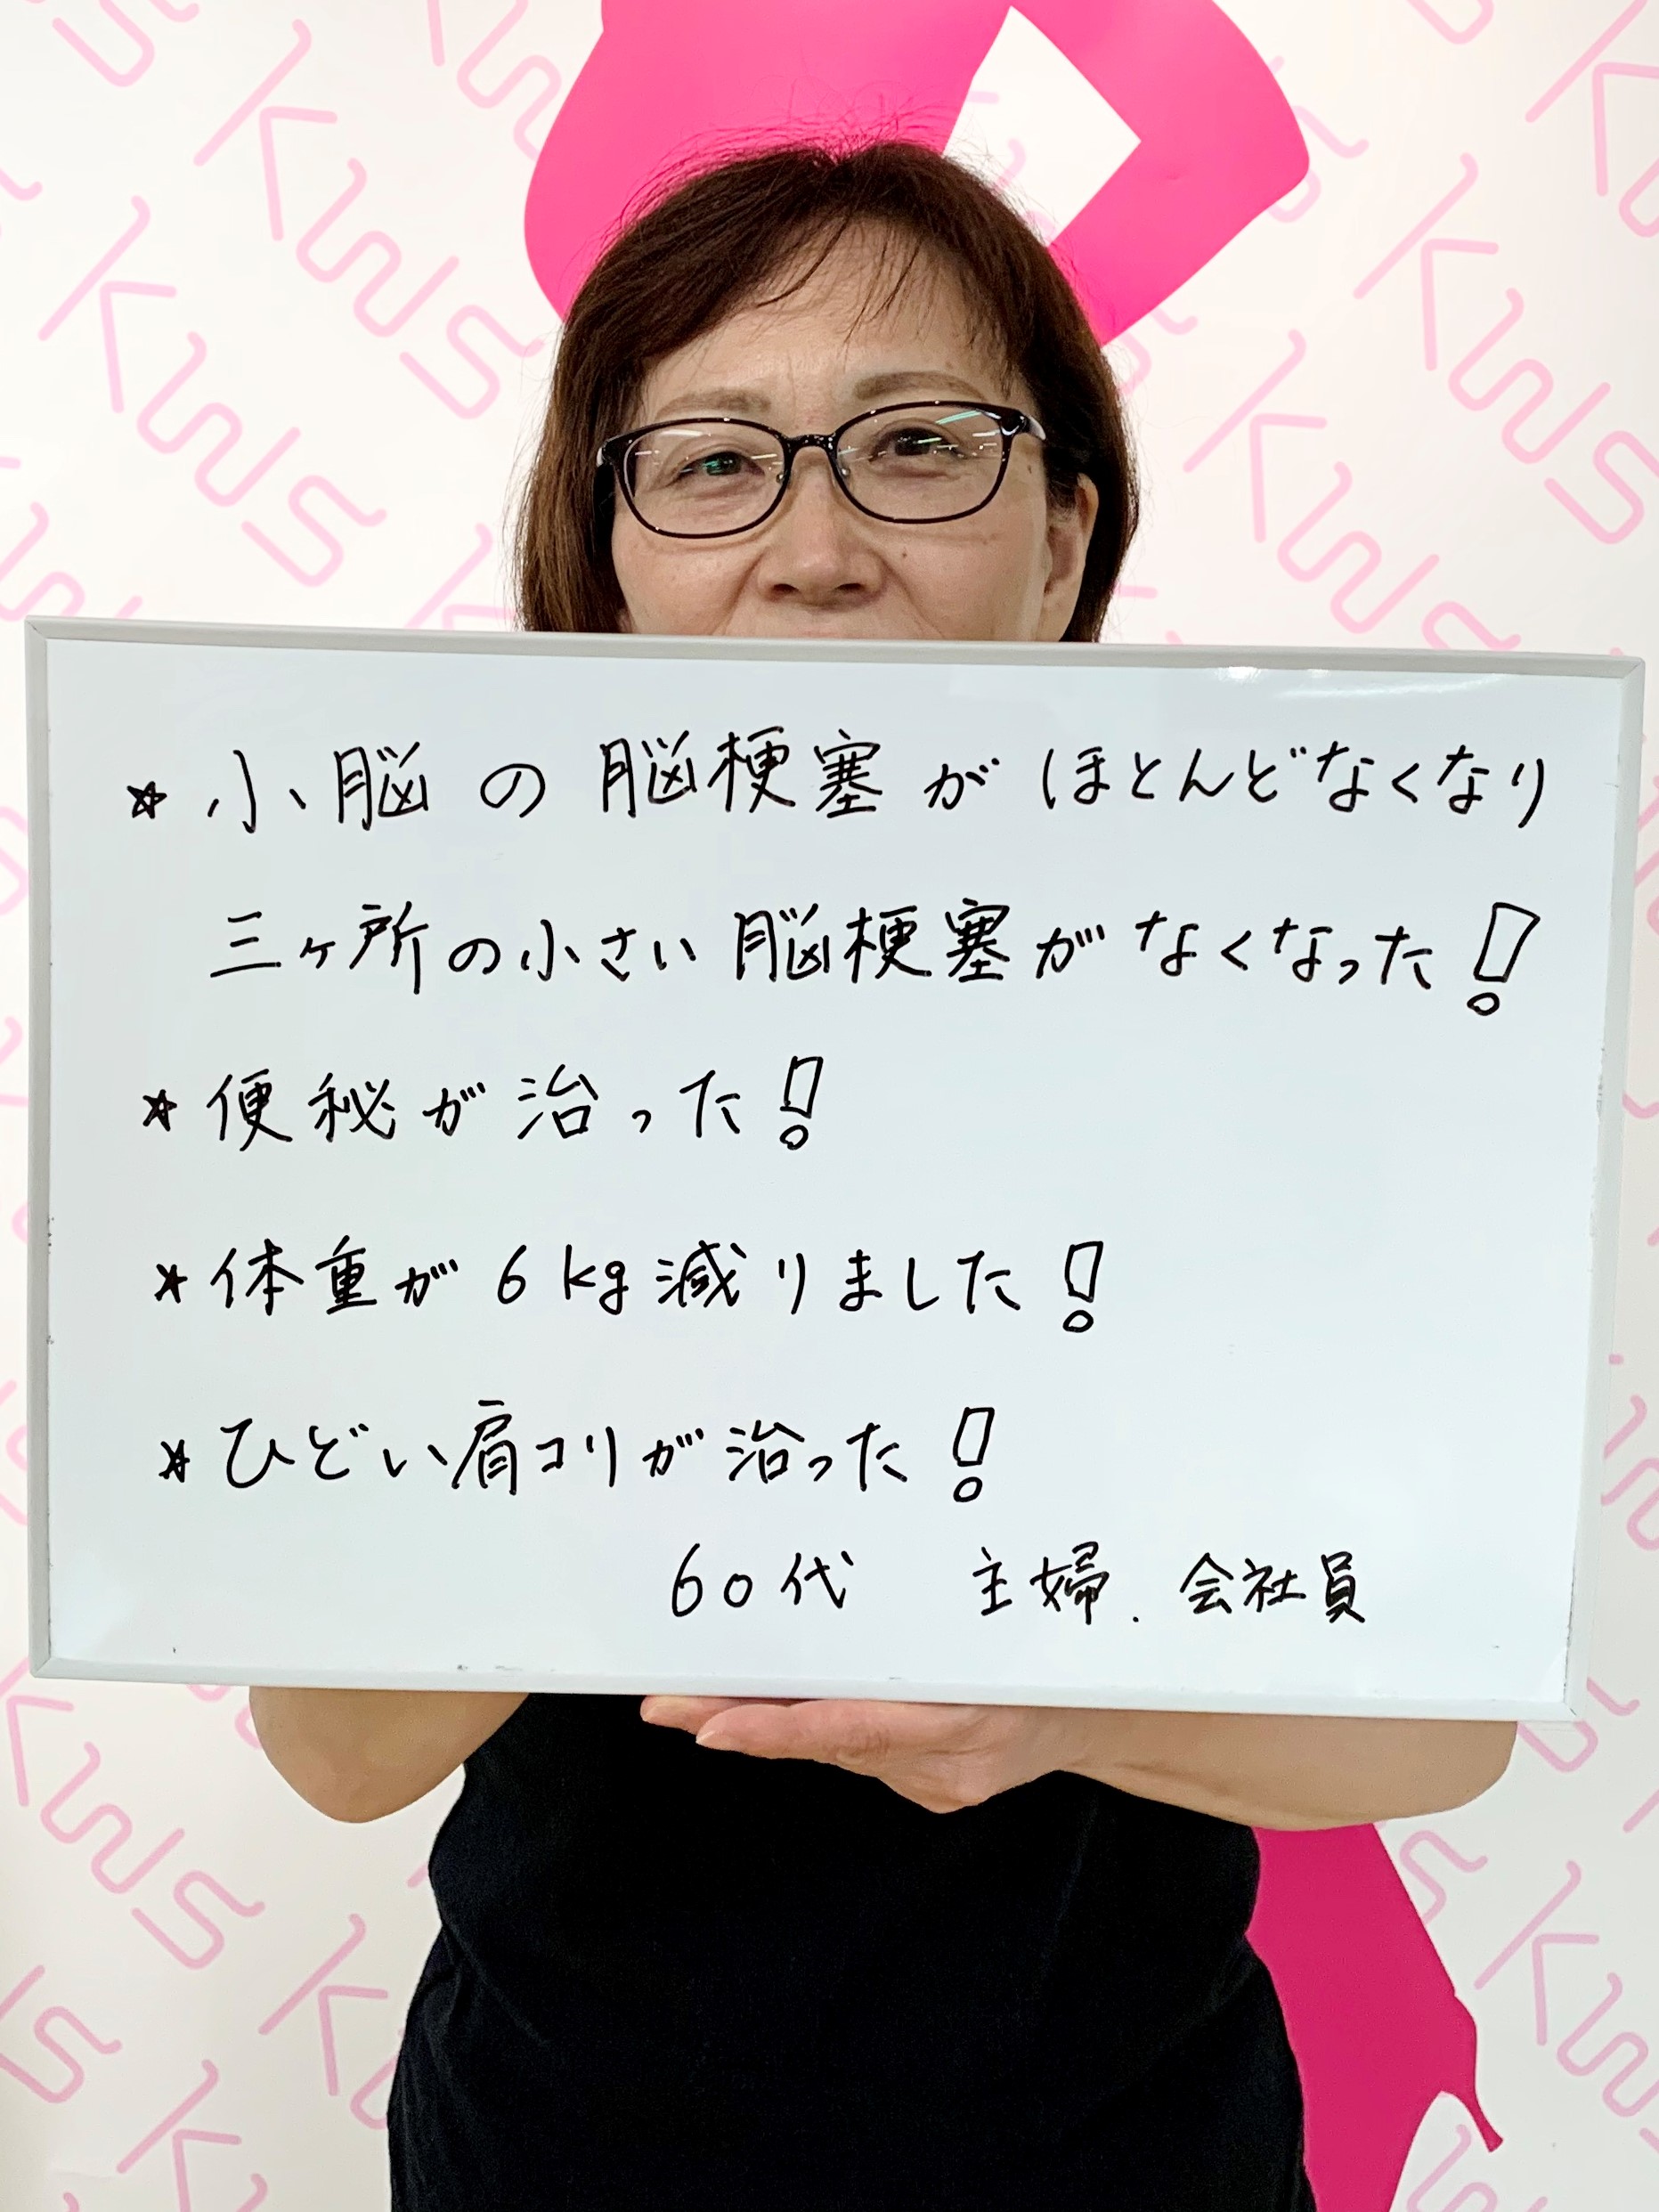 ☆小脳の脳梗塞がほとんどなくなり
三ヶ所の小さい脳梗塞がなくなった!
☆便秘が治った!
☆体重が6kg減りました!
☆ひどい肩コリが治った!
60代 主婦.会社員